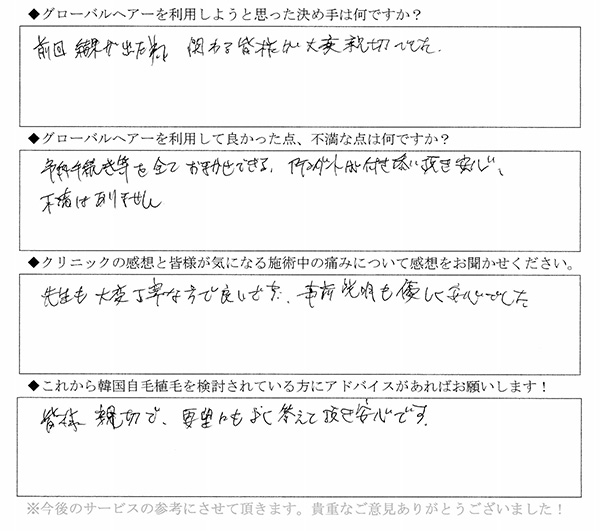 ◆グローバルヘアーを利用しようと思った決め手は何ですか？
前回 結果が出た為、関わる皆様が大変親切でした.
◆グローバルヘアーを利用して良かった点、不満な点は何ですか？
手続き等を全ておまかせできる、アテンダントが付き添い頂き安心、
不満はありません
◆クリニックの感想と皆様が気になる施術中の痛みについて感想をお聞かせください。
先生も大変丁寧な方で良いです、事前説明も優しく安心でした
◆これから韓国自毛植毛を検討されている方にアドバイスがあればお願いします！
皆様 親切で、要望にもよく答えて頂き安心です.
※今後のサービスの参考にさせて頂きます。貴重なご意見ありがとうございました！